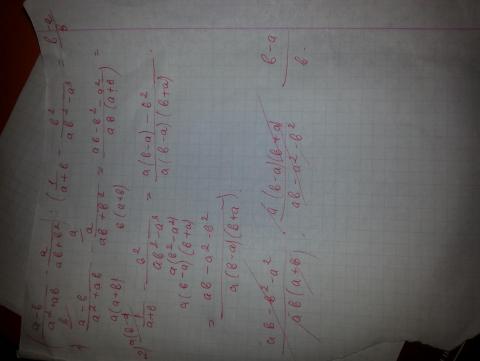 (a-b)/(a²+ab) - a/(ab+b²) : (1/(a+b) - b²/(ab²-a³)) = (b-a)/b
1) (a-b)/(a²+ab) - a/(ab+b²) = (ab-b²-a²)/(ab(a+b)) =
a(a+b) b(a+b)
2) 1/(a+b) - b²/(ab²-a³) = (a(b-a)-b²)/(a(b-a)(b+a)) =
a(b²-a²)
a(b-a)(b+a)
= (ab-a²-b²)/(a(b-a)(b+a))
(ab-b²-a²)/(ab(a+b)) (a(b-a)(b+a))/(ab-a²-b²) (b-a)/b